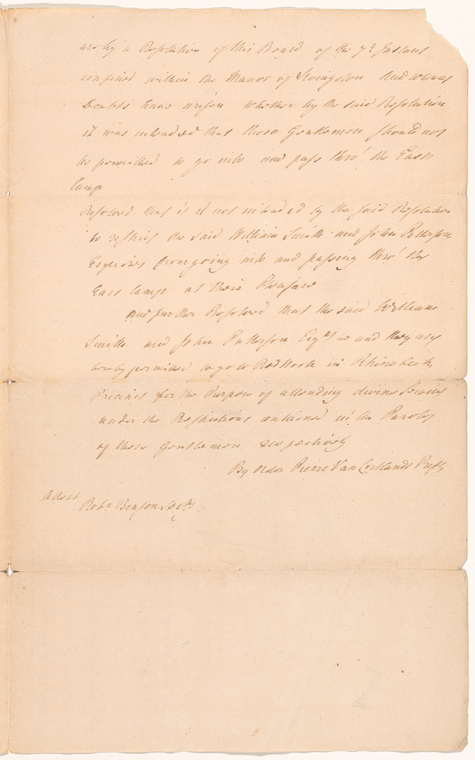 are by a Resolution of this Board of the 7th Instant
confined within the Manor of Livingston And whereas
Doubts have arisen whether by the said Resolution
it was intended that those Gentlemen should not
be permitted to go into and pass thro' the East
Camp
Resolved that it is not intended by the said Resolution
to restrict the said William Smith and John Patterson
Esquires from going into and passing thro' the
East Camp at their Pleasure
And further Resolved that the said William
Smith and John Patterson Esqrs be and they are
hereby permitted to go to Red Hook in Rhinebeck
Precinct for the Purpose of attending divine Service
under the Restrictions contained in the Paroles
of those Gentlemen respectively
By order Pierre Van Cortlandt Presdt
Attest
Robt Benson Secry